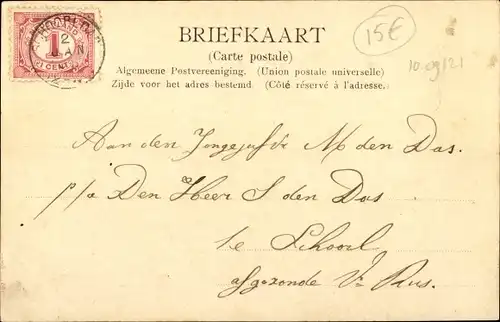 BRIEFKAART
(Carte postale)
Algemeene Postvereeniging. (Union postale universelle)
Zijde voor het adres bestemd (Côté réservé à l'adresse.
15€
10.09121
1
1 CENT
2
Aan den Jongejufr M den Das.
p/a Den Heer S den Das
te Schoorl
afgezonde V